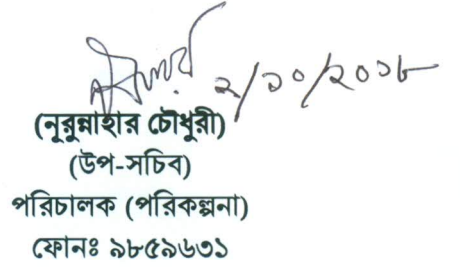 ২/১০/২০১৮
(নুরুন্নাহার চৌধুরী)
(উপ-সচিব)
পরিচালক (পরিকল্পনা)
ফোনঃ ৯৮৫৯৬৩১